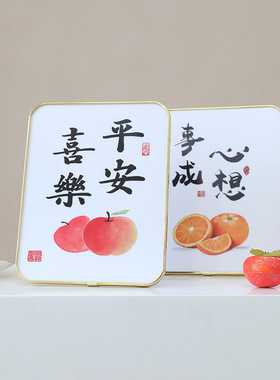 平安
喜樂
心想
事成